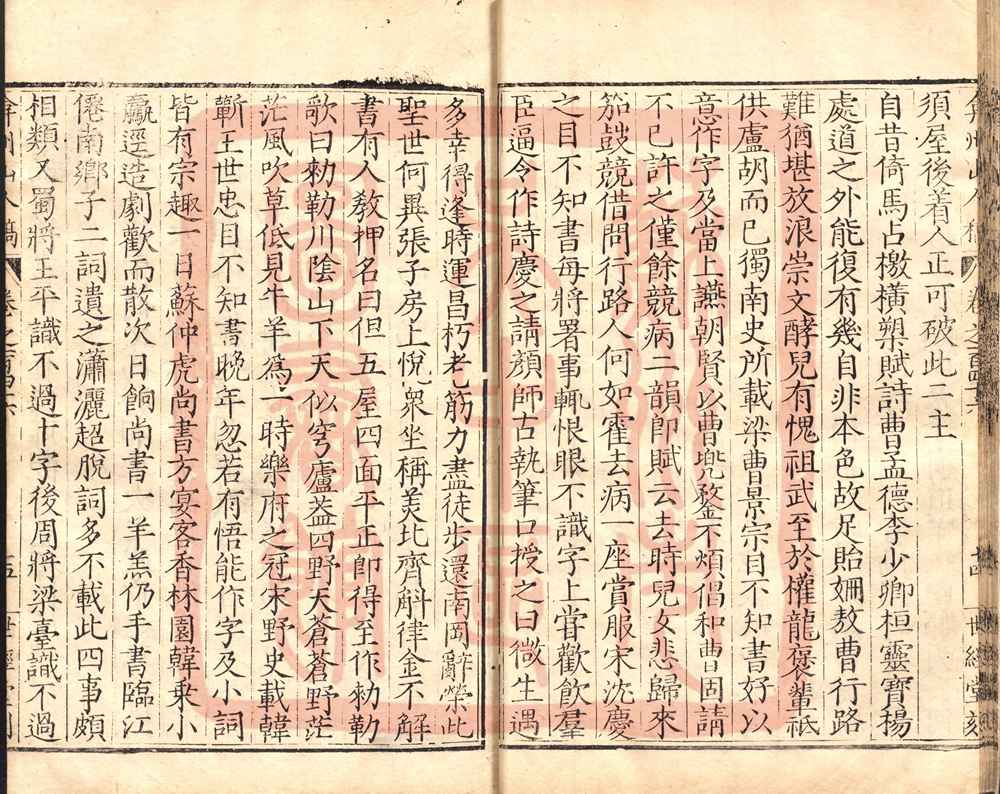 弇州山人稿 卷之 十四 世經堂刻
須屋後着人正可破此二主
自昔倚馬占檄橫槊賦詩曹孟德李少卿桓靈寶楊
處道之外能復有幾自非本色故足貽姍敖曹行路
難猶堪放浪崇文酵兒有愧祖武至於權龍褒輩祗
供盧胡而已獨南史所載梁曹景宗目不知書好以
意作字及當上讌朝賢以曹兜鍪不煩倡和曹固請
不已許之僅餘競病二韻卽賦云去時兒女悲歸來
笳鼓競借問行路人何如霍去病一座賞服宋沈慶
之目不知書每將署事輒恨眼不識字上嘗歡飲羣
臣逼令作詩慶之請顏師古執筆口授之曰微生遇
多幸得逢時運昌朽老筋力盡徒步還南岡辭榮此
聖世何異張子房上悅衆坐稱美比齊斛律金不解
書有人敎押名曰但五屋四面平正卽得至作勅勒
歌曰勅勒川陰山下天似穹廬蓋四野天蒼蒼野茫
茫風吹草低見牛羊爲一時樂府之冠宋野史載韓
蘄王世忠目不知書晚年忽若有悟能作字及小詞
皆有宗趣一日蘇仲虎尚書方宴客香林園韓乗小
驘逕造劇歡而散次日餉尚書一羊羔仍手書臨江
僊南鄉子二詞遺之瀟灑超脫詞多不載此四事頗
相類又蜀將王平識不過十字後周將梁臺識不過
弇州山人稿 卷之 十五 世經堂刻